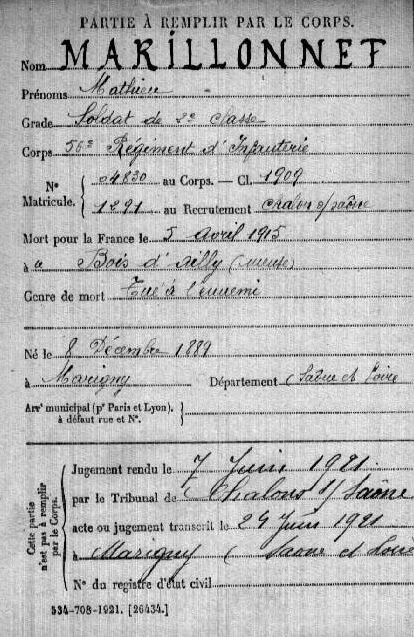 PARTIE À REMPLIR PAR LE CORPS.
Nom MARILLONNET
Prénoms Mathieu
Grade Soldat de 2e classe
Corps 56e Régiment d'Infanterie
N° Matricule. { 04830 au Corps. — Cl. 1909
1291 au Recrutement Chalon s/Saône
Mort pour la France le 5 avril 1915
à a Bois d'Ailly (Meuse)
Genre de mort Tué à l'ennemi
Né le 8 Décembre 1889
à Marigny Département Saône et Loire
Arrt municipal (pr Paris et Lyon),
à défaut rue et N°.
Cette partie n'est pas à remplir par le Corps.
Jugement rendu le 7 Juin 1921
par le Tribunal de Chalons s/ Saône
acte ou jugement transcrit le 24 Juin 1921
à Marigny (Saone et Loire
N° du registre d'état civil
534-708-1921. [26434.]